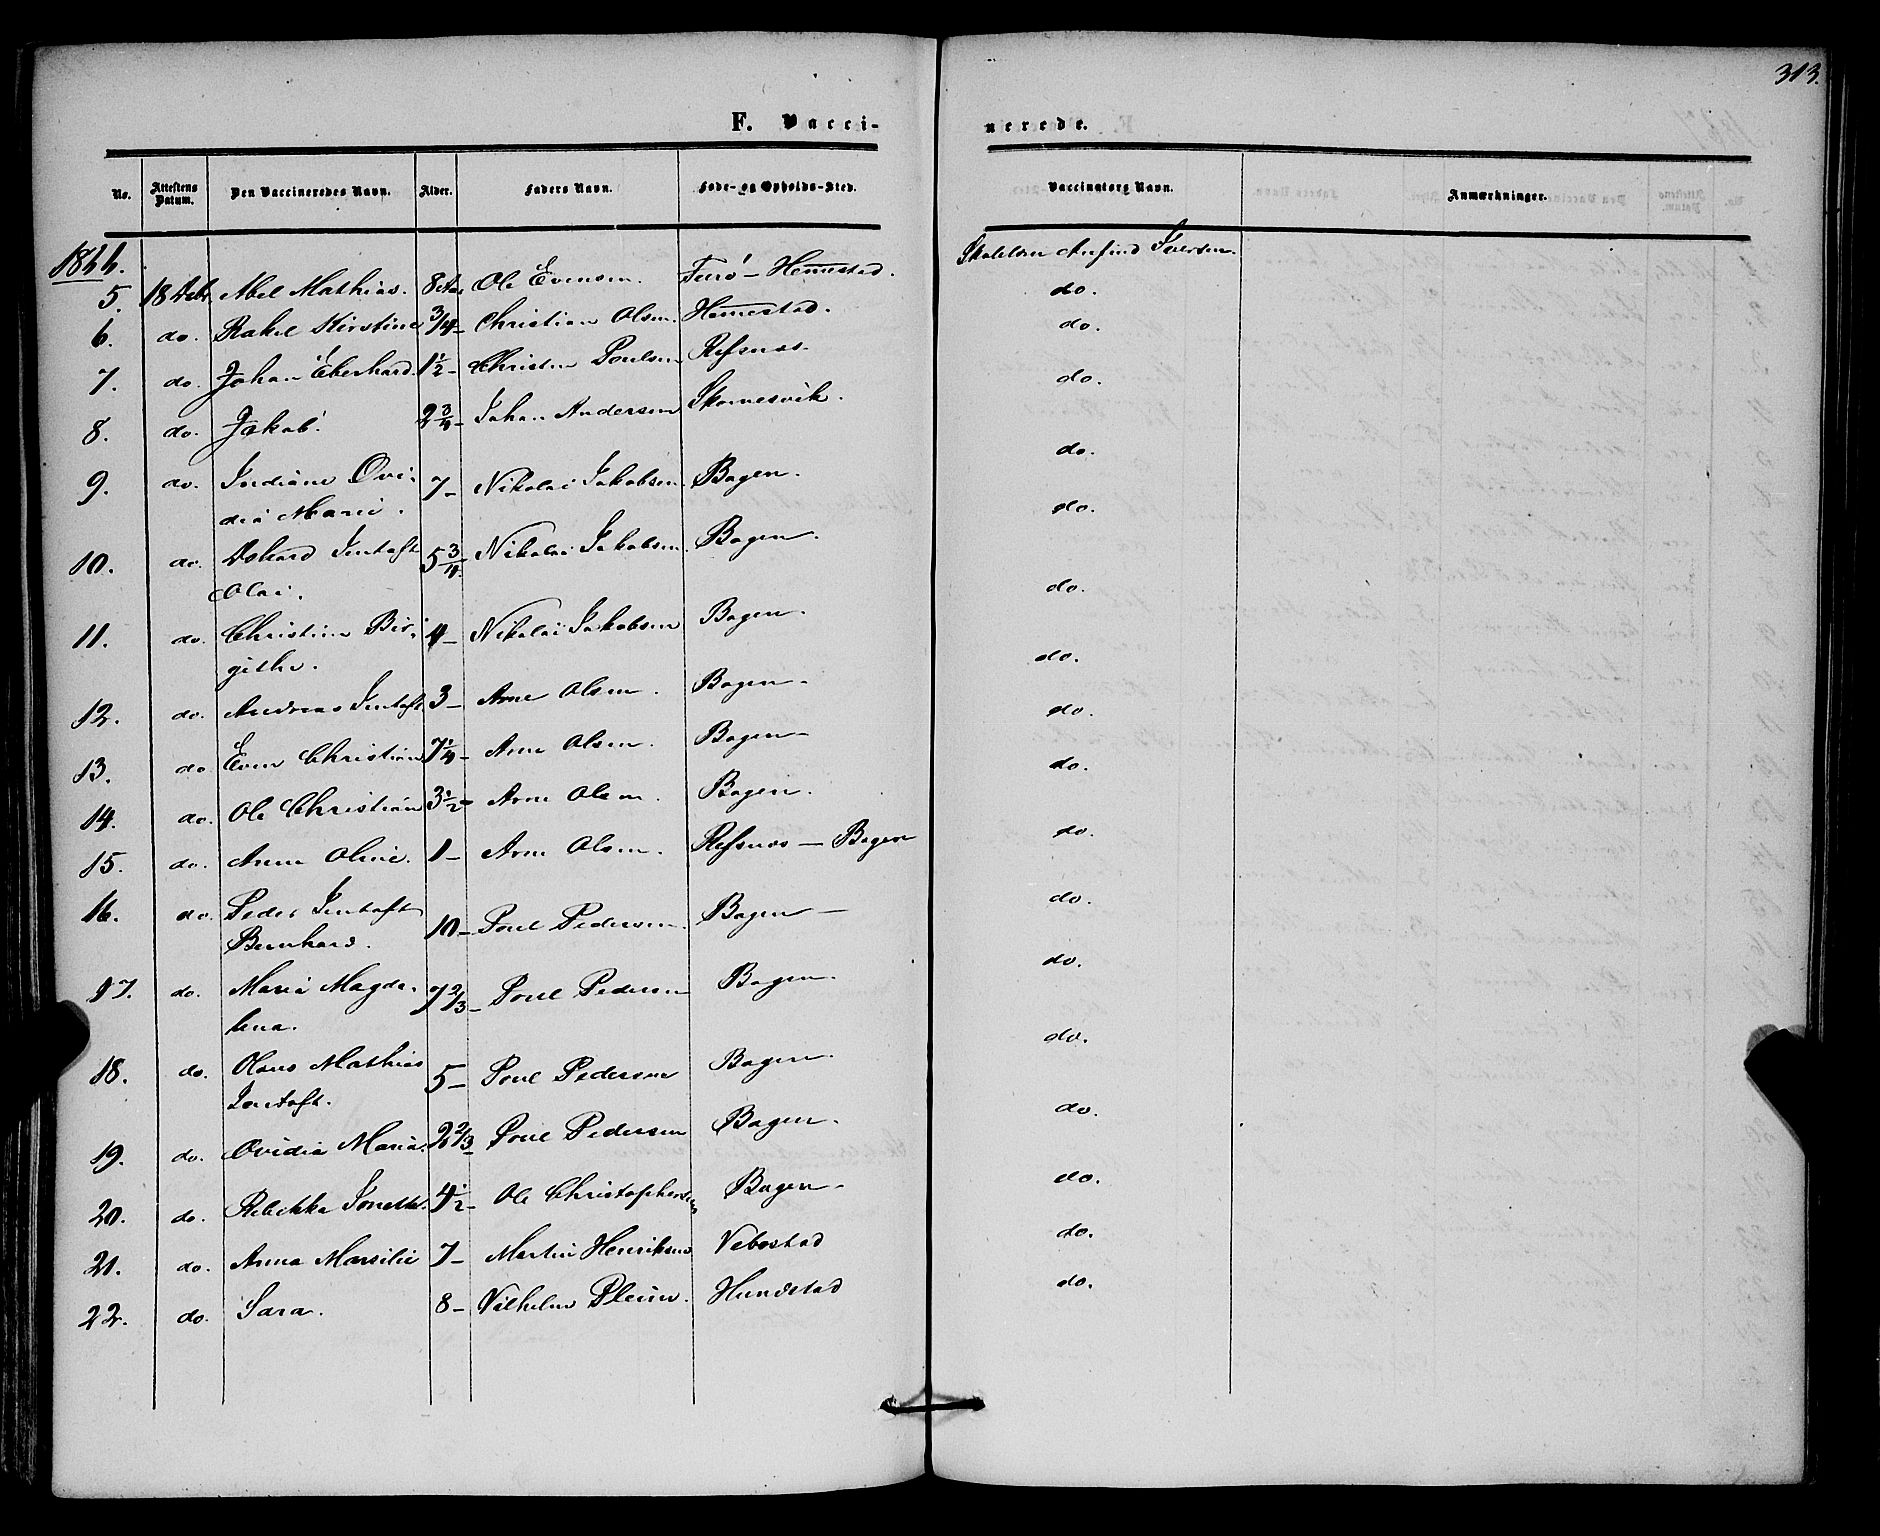 313.
F. Vacci-
nerede.
No. Attestens Datum. Den Vaccineredes Navn. Alder. Faders Navn. Føde- og Opholds-Sted. Vaccinators Navn. Anmærkninger.
1866.
5. 18 Abel Mathias. 8 Ole Evensen. Hemestad. Iversen.
6. do. Rakel Kirstine 3/4 Christian Olsen. Hemestad. do.
7. do. Johan Eberhard. 1 1/2 Christen Poulsen Refsnæs. do.
8. do. Jakob. 2 3/4 Johan Andersen do.
9. do. Ovi-
dia Marie. 7 Nikolai Jakobsen. Bogen. do.
10. do. Jentoft
Olai. 5 3/4 Nikolai Jakobsen. Bogen. do.
11. do. Christine Bir-
githe. 4 Nikolai Jakobsen Bogen. do.
12. do. Andreas Jentoft 3 Arne Olsen. Bogen. do.
13. do. Even Christian 7 1/4 Arne Olsen. Bogen. do.
14. do. Ole Christian 3 1/2 Arne Olsen. Bogen. do.
15. do. Anne Oline. 1 Arne Olsen. Refsnæs — Bogen do.
16. do. Peder Jentoft
Bernhard. 10 Poul Pedersen. Bogen do.
17. do. Maria Magda-
lena. 7 2/3 Poul Pedersen Bogen. do.
18. do. Olaus Mathias
Jentoft. 5 Poul Pedersen Bogen. do.
19. do. Ovidia Maria. 2 2/3 Poul Pedersen Bogen. do.
20. do. Rebekka 4 1/2 Ole Christophersen Bogen. do.
21. do. Anna Marsilie 7 Martin Henriksen Vebostad do.
22. do. Sara. 8 Vilhelm Hundstad do.